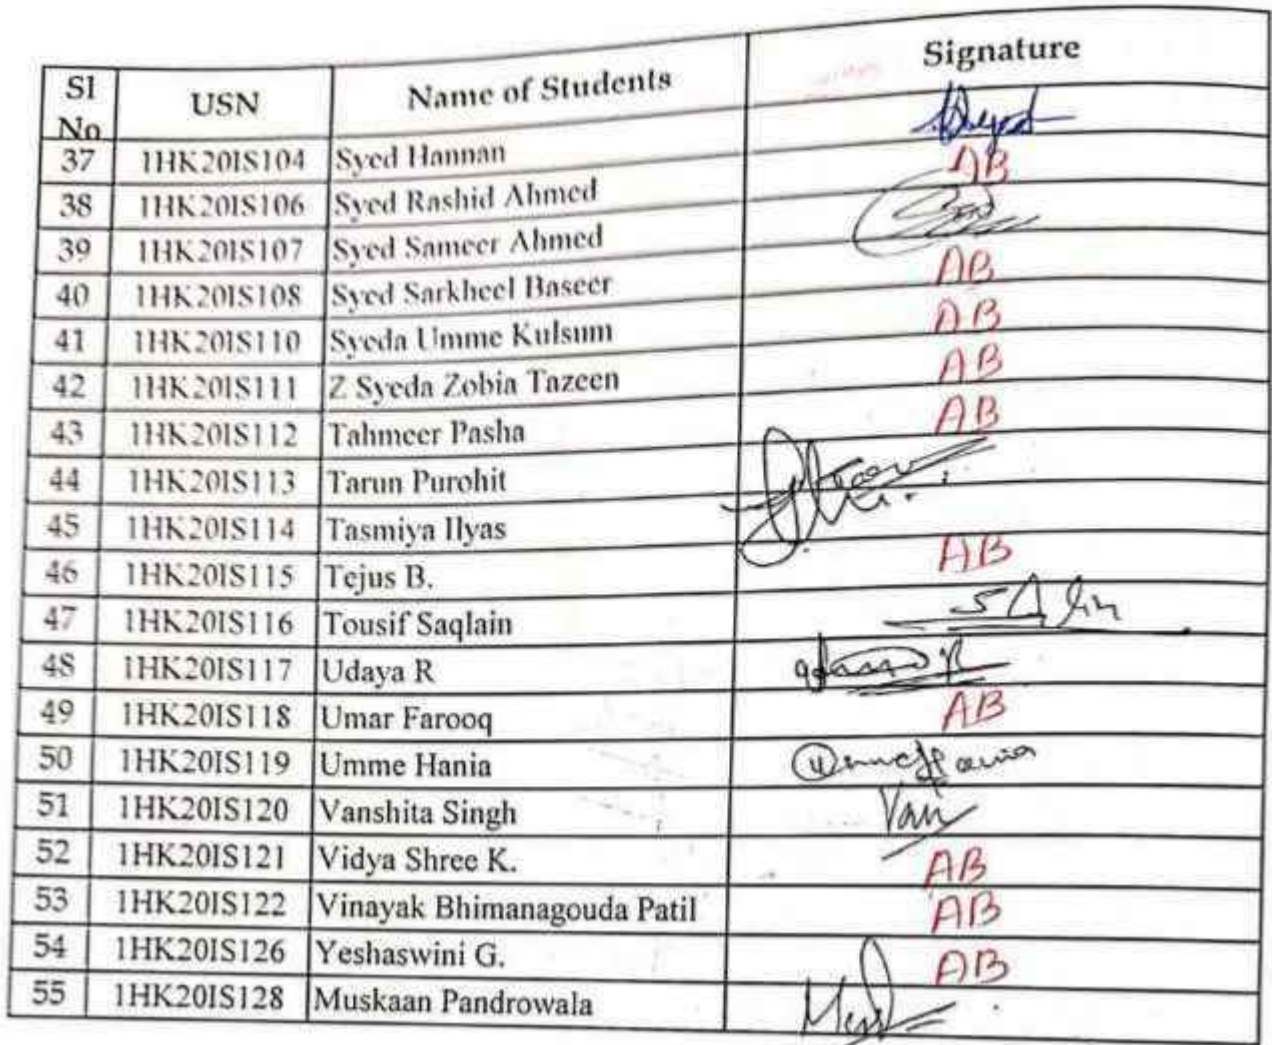 Sl No USN Name of Students Signature
37 1HK20IS104 Syed Hannan
38 1HK20IS106 Syed Rashid Ahmed AB
39 1HK20IS107 Syed Sameer Ahmed
40 1HK20IS108 Syed Sarkheel Baseer AB
41 1HK20IS110 Syeda Umme Kulsum AB
42 1HK20IS111 Z Syeda Zobia Tazeen AB
43 1HK20IS112 Tahmeer Pasha AB
44 1HK20IS113 Tarun Purohit
45 1HK20IS114 Tasmiya Ilyas
46 1HK20IS115 Tejus B. AB
47 1HK20IS116 Tousif Saqlain
48 1HK20IS117 Udaya R
49 1HK20IS118 Umar Farooq AB
50 1HK20IS119 Umme Hania
51 1HK20IS120 Vanshita Singh Van
52 1HK20IS121 Vidya Shree K. AB
53 1HK20IS122 Vinayak Bhimanagouda Patil AB
54 1HK20IS126 Yeshaswini G. AB
55 1HK20IS128 Muskaan Pandrowala